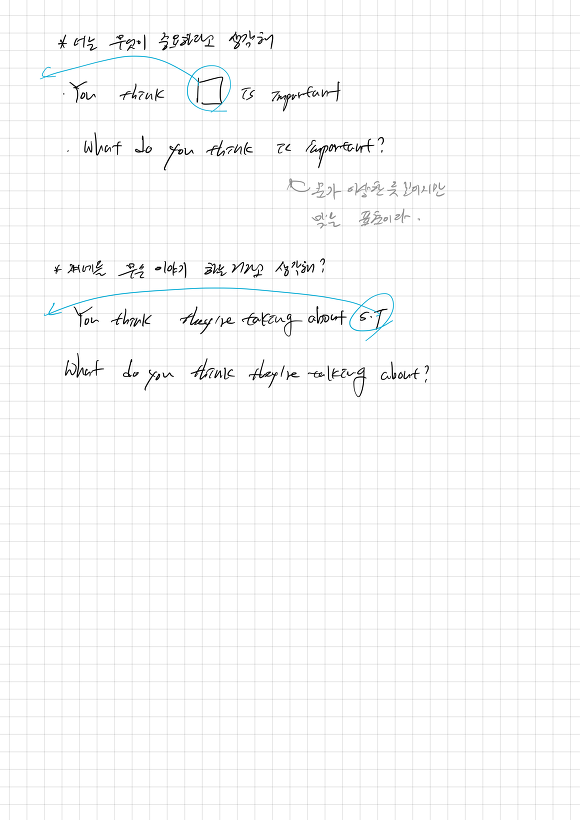 * 너는 무엇이 중요하다고 생각해
· You think □ is important
· What do you think is important?
뭔가 이상한 듯 보이시만
맞는 표현이라.
* 쟤네들 무슨 이야기 하는거라고 생각해?
You think they're talking about S.T
What do you think they're talking about?